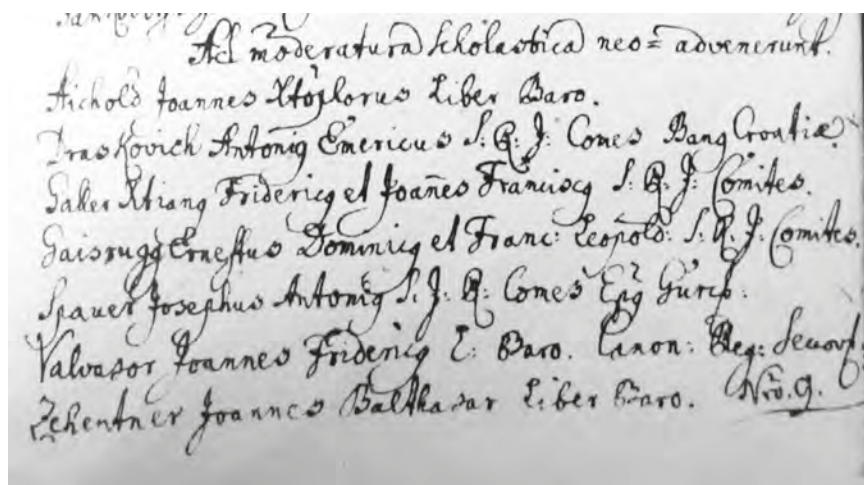 Ad moderatura scholastica neo= advenerunt.
Aichold Joannes Xtophorus Liber Baro.
Draskovich Antonig Emericus S. R. J. Comes Bang Croatiæ.
Galler Xtiang Fridericg et Joanes Franciscg S. R. J. Comites.
Gaisrugg Ernestus Dominicg et Franc: Leopold: S. R. J. Comites.
Spauer Josephus Antonig S. J. R. Comes Epg Gurcs:
Valvasor Joannes Fridericg L: Baro. Canon: Reg:
Zehentner Joannes Balthasar Liber Baro. Nro. 9.